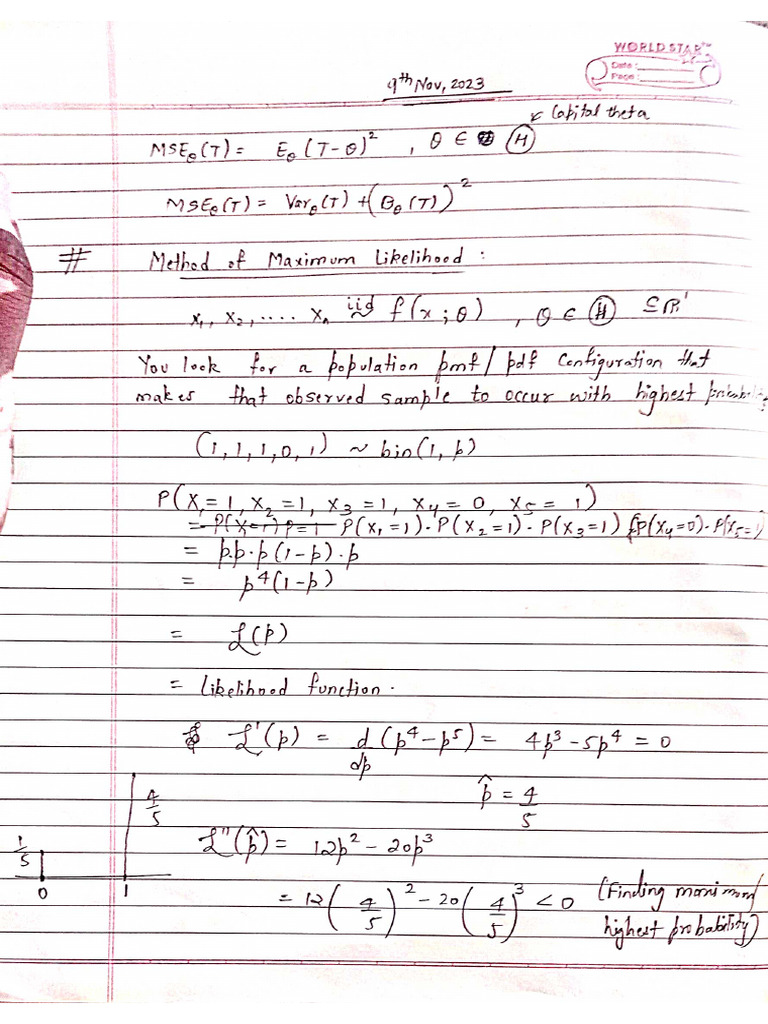 WORLD STAR
Date :
Page :
9th Nov, 2023
↙ Capital theta
MSE_θ(T) = E_θ (T-θ)² , θ ∈ Ⓗ
MSE_θ(T) = Var_θ(T) + (B_θ(T))²
# Method of Maximum Likelihood :
x₁, x₂, .... xₙ iid ~ f(x ; θ) , θ ∈ Ⓗ ⊆ ℝ¹
You look for a population pmf / pdf configuration that
makes that observed sample to occur with highest probability
(1, 1, 1, 0, 1) ~ bin(1, p)
P(X₁ = 1, X₂ = 1, X₃ = 1, X₄ = 0, X₅ = 1)
= P(X₁=1) P=1 P(X₁ = 1) · P(X₂ = 1) · P(X₃ = 1) P(X₄ = 0) · P(X₅ = 1)
= p.p.p (1-p) . p
= p⁴(1-p)
= L(p)
= Likelihood function.
L'(p) = d/dp (p⁴ - p⁵) = 4p³ - 5p⁴ = 0
p̂ = 4/5
4/5
1/5
0 1
L''(p̂) = 12p² - 20p³
= 12(4/5)² - 20(4/5)³ < 0 (Finding
highest probability)